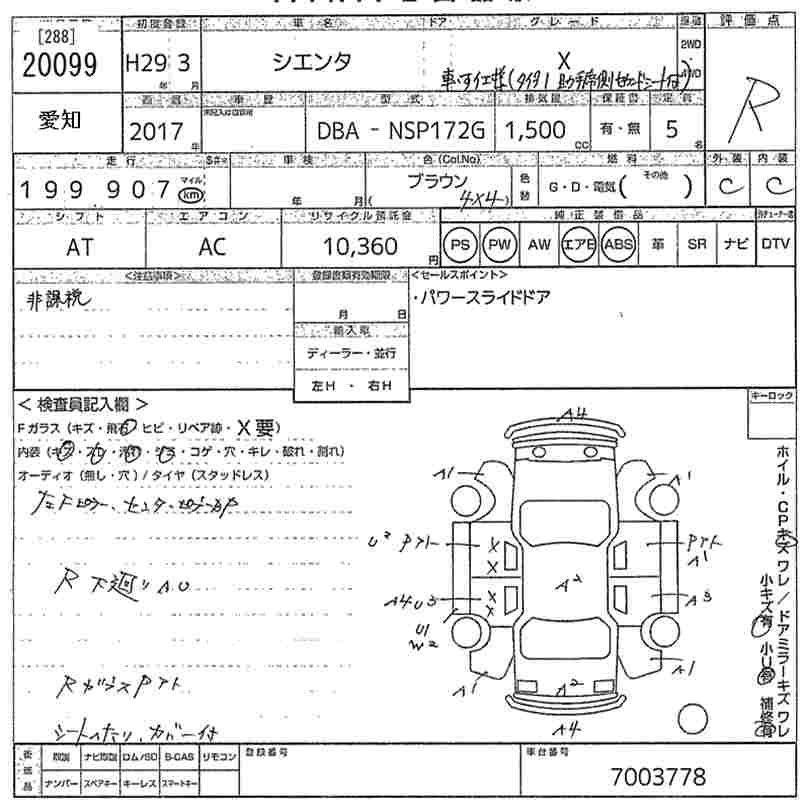 [288]
20099
初度登録 車名 ドア グレード 評価点
H29 3 シエンタ X R
年 月
車いす仕様(タイプ1 助手席側セカンドシート付)
2WD
4WD
愛知
車歴 型式 排気量 保証書 定員
2017年 DBA - NSP172G 1,500cc 有・無 5名
走行 車検 色(Col.No) 燃料 外装 内装
199 907 マイル km 年 月 ブラウン ( 4X4 ) 色替 G・D・電気( その他 ) C C
シフト エアコン リサイクル預託金 純正装備品
AT AC 10,360円 PS PW AW エアB ABS 革 SR ナビ DTV
<注意事項> 登録書類有効期限 <セールスポイント>
非課税 月 日 ・パワースライドドア
輸入車
ディーラー・並行
左H ・ 右H
<検査員記入欄>
Fガラス (キズ・飛石 ヒビ・リペア跡・X要)
内装 (キズ・スレ・汚れ・シミ・コゲ・穴・キレ・破れ・割れ)
オーディオ (無し・穴) / タイヤ (スタッドレス)
R 下廻り AU
R ガラス Pアト
シートへたり、カバー付
キーロック
ホイル・CPキズ ワレ / ドアミラーキズ ワレ
小キズ有 小U有 補修有
A4
A1 A1
U2 Pアト X X Pアト A1
A2
A4 U3 X X A3
U1
W2
A1 A2 A1
A4
取説 ナビ取説 ロム/SD B-CAS リモコン 登録番号 車台番号
ナンバー スペアキー キーレス スマートキー 7003778